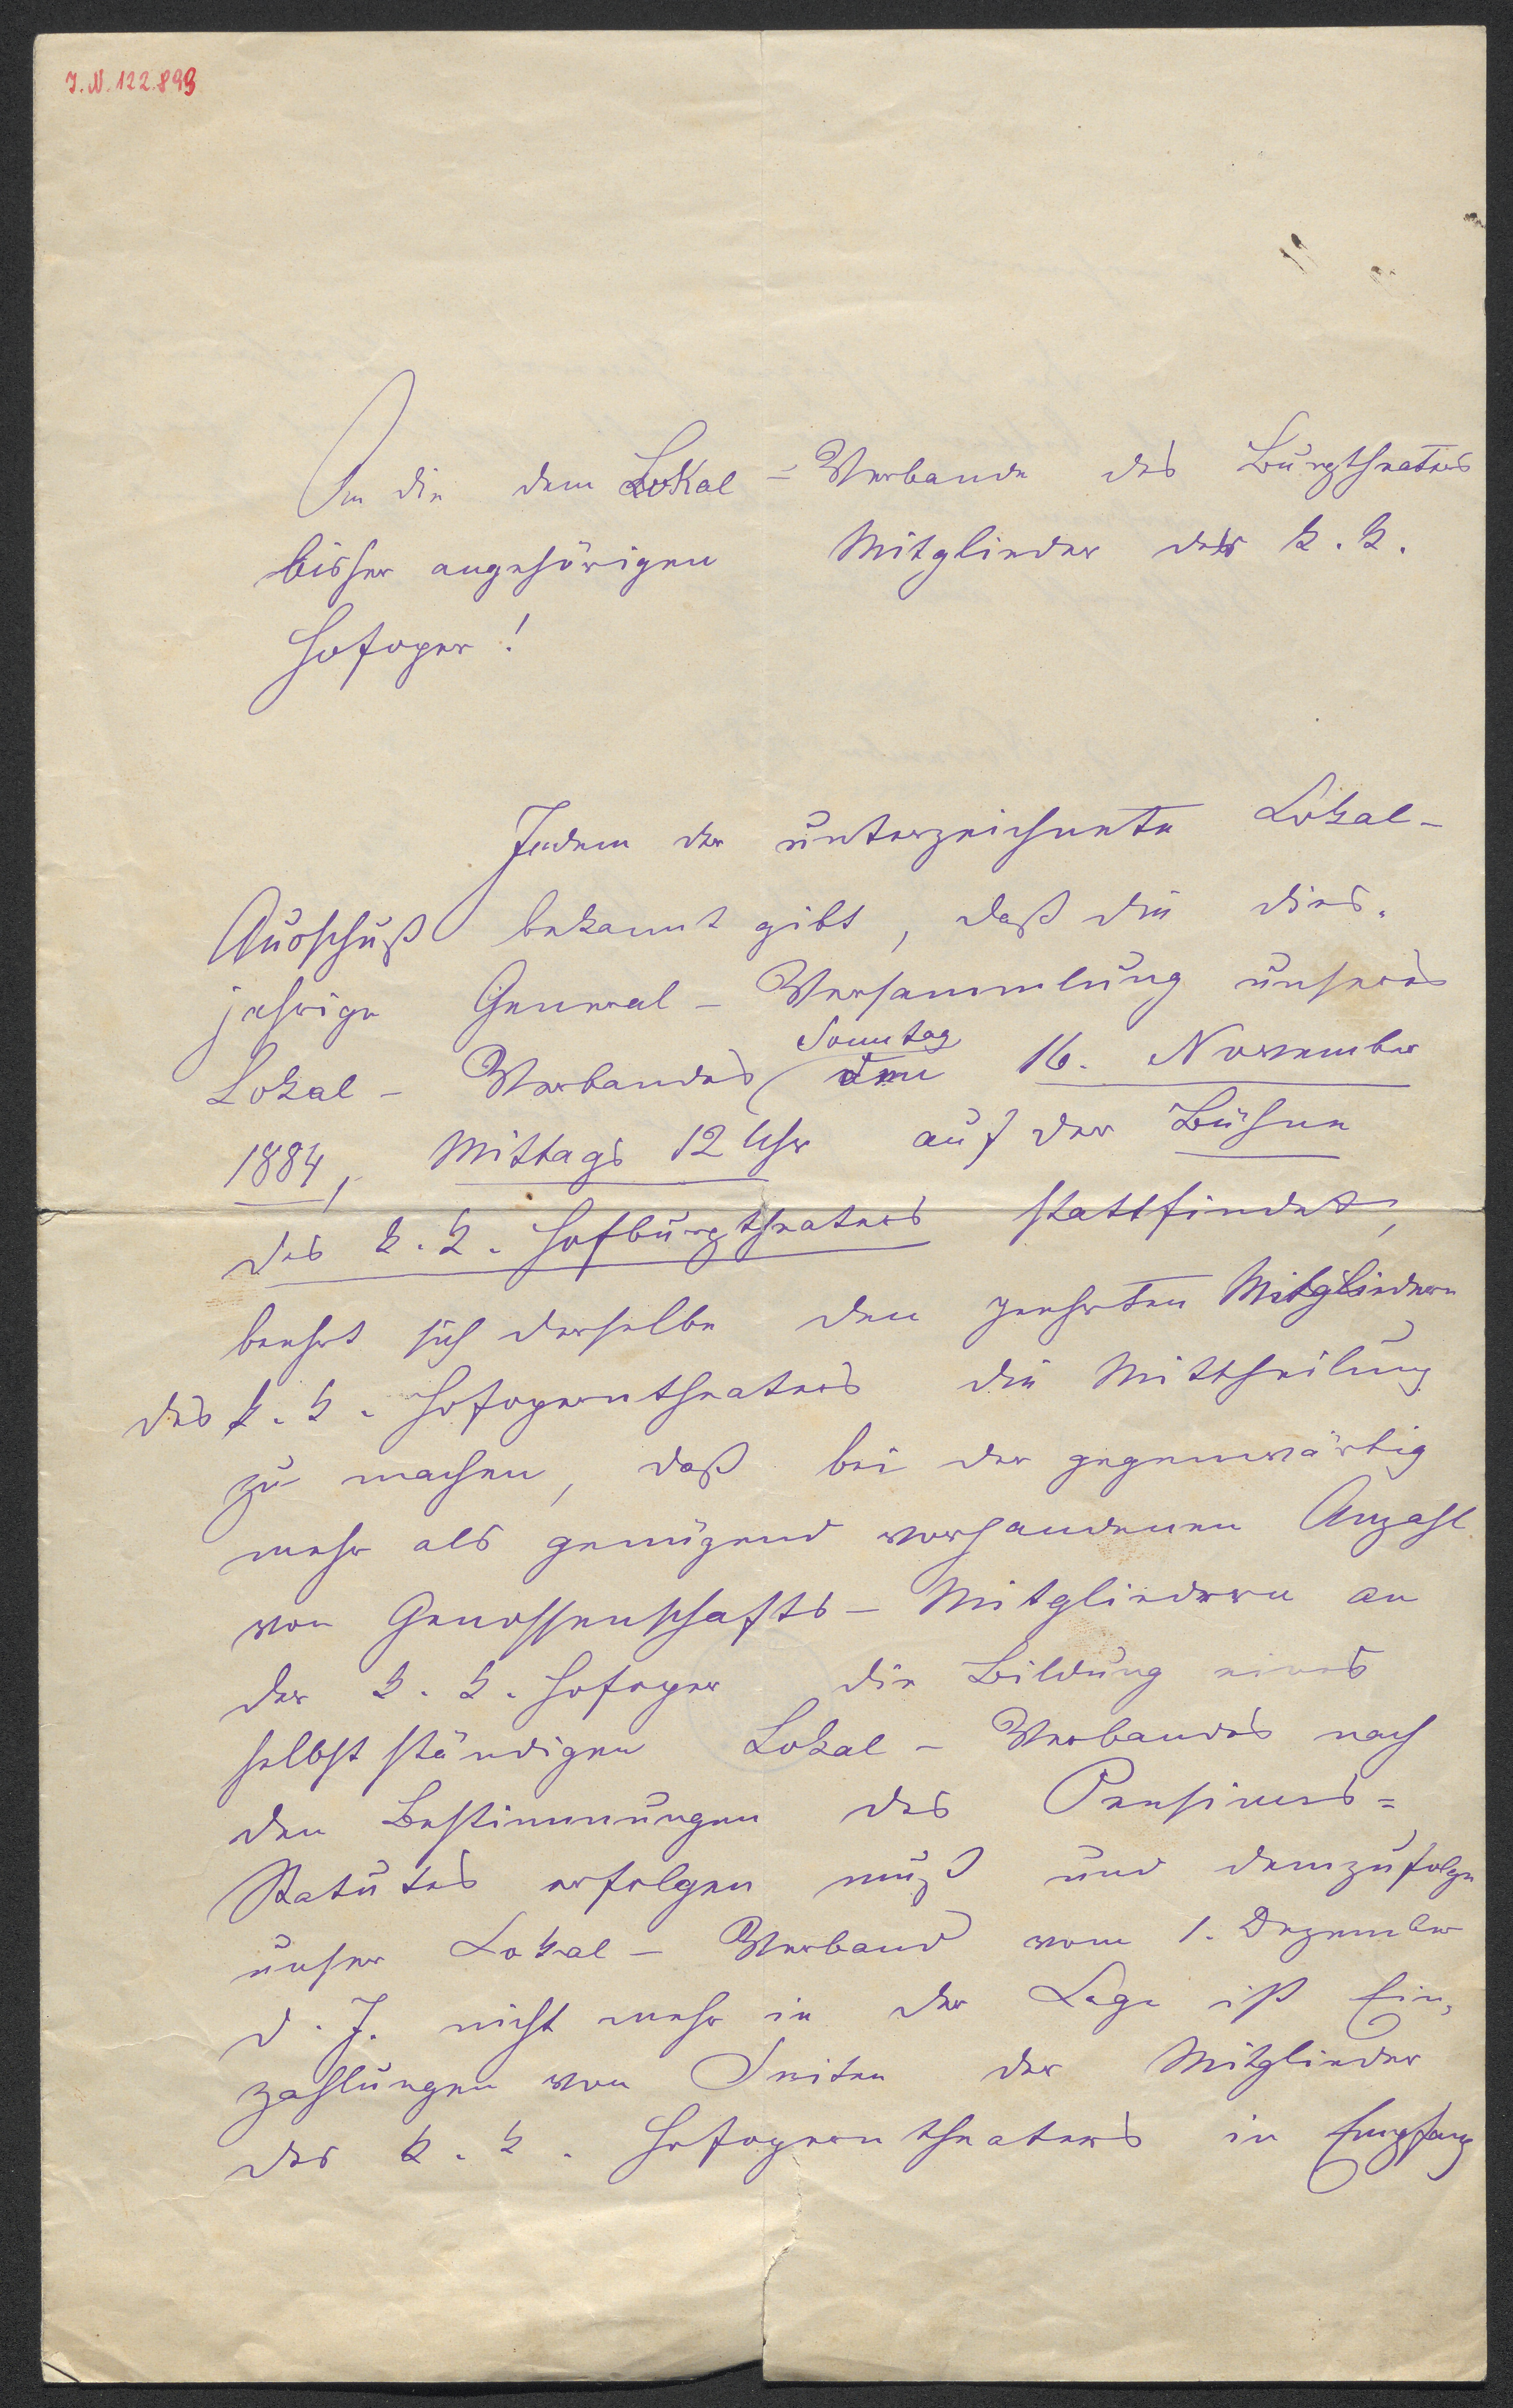 J.N. 122.899
An die dem Lokal=Verbande des Burgtheaters
bisher angehörigen Mitglieder der k. k.
Hofoper!
Indem der unterzeichnete Lokal-
Ausschuß bekannt gibt, daß die dies-
jährige General-Versammlung unseres
Sonntag
Lokal-Verbandes den 16. November
1884, Mittags 12 Uhr auf der Bühne
des k. k. Hofburgtheaters stattfindet,
beehrt sich derselbe den geehrten Mitgliedern
des k. k. Hofoperntheaters die Mittheilung
zu machen, daß bei der gegenwärtig
mehr als genügend vorhandenen Anzahl
von Genossenschafts-Mitgliedern an
der k. k. Hofoper die Bildung eines
selbstständigen Lokal-Verbandes nach
den Bestimmungen des Pensions=
Statutes erfolgen muß und demzufolge
unser Lokal-Verband vom 1. Dezember
d. J. nicht mehr in der Lage ist Ein-
zahlungen von Seiten der Mitglieder
des k. k. Hofoperntheaters in Empfang